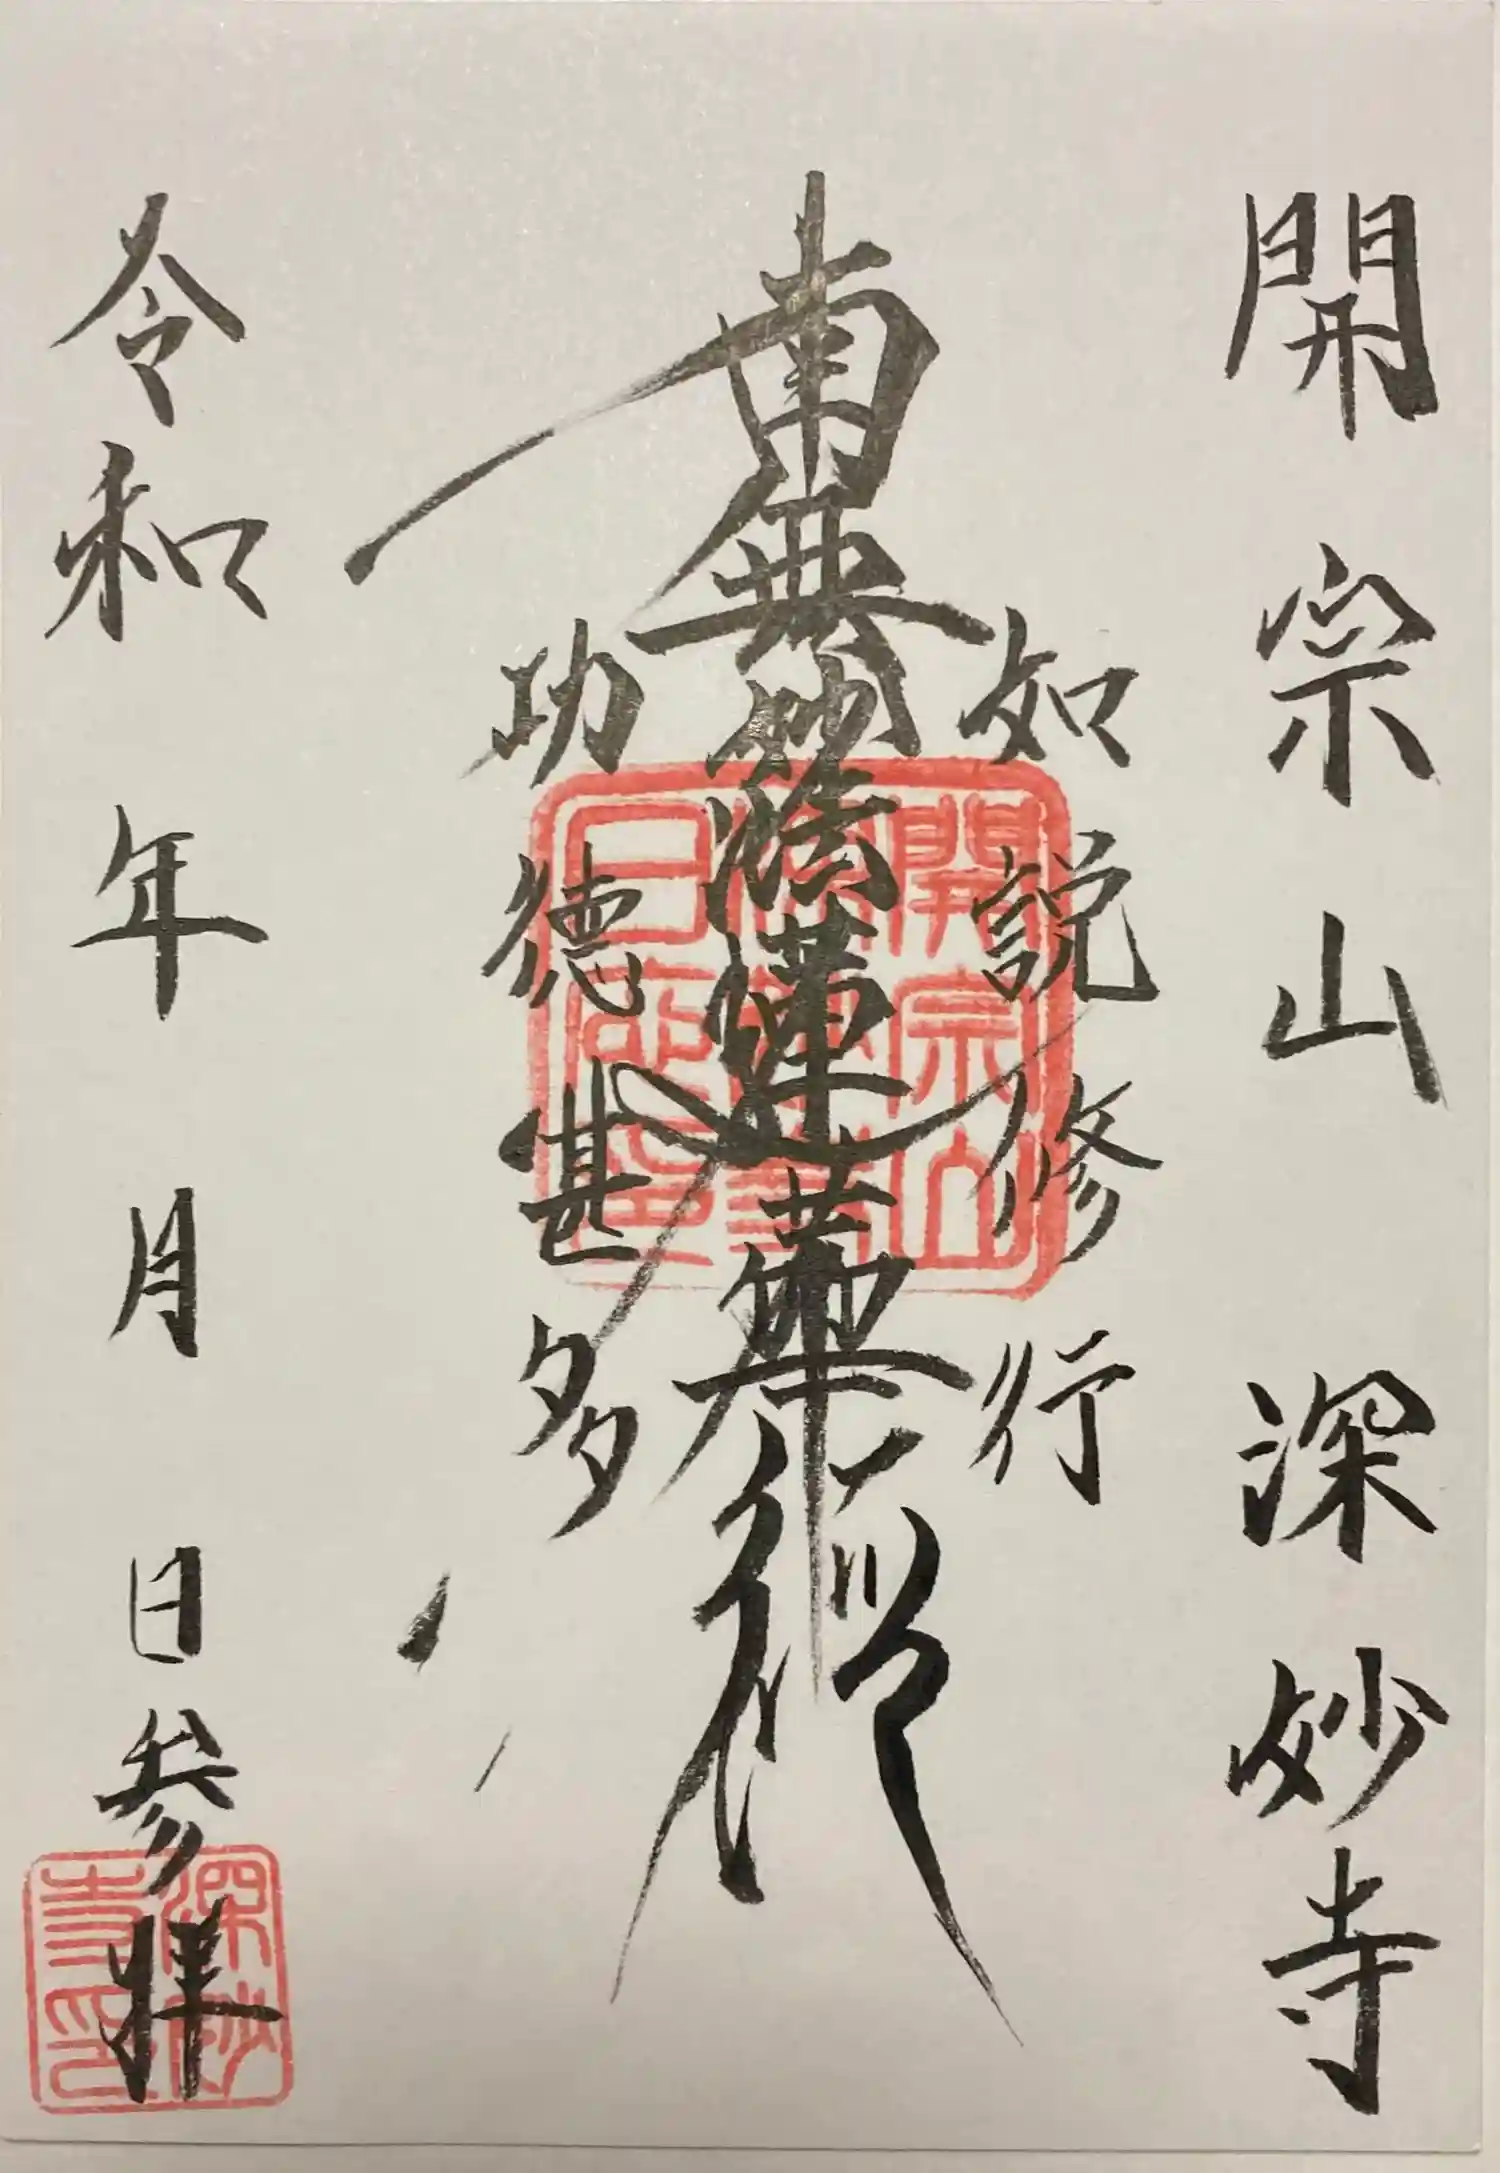 開宗山 深妙寺
如説修行
南無妙法蓮華経
功徳甚多
令和 年 月 日参拝
開宗山
深妙
寺印